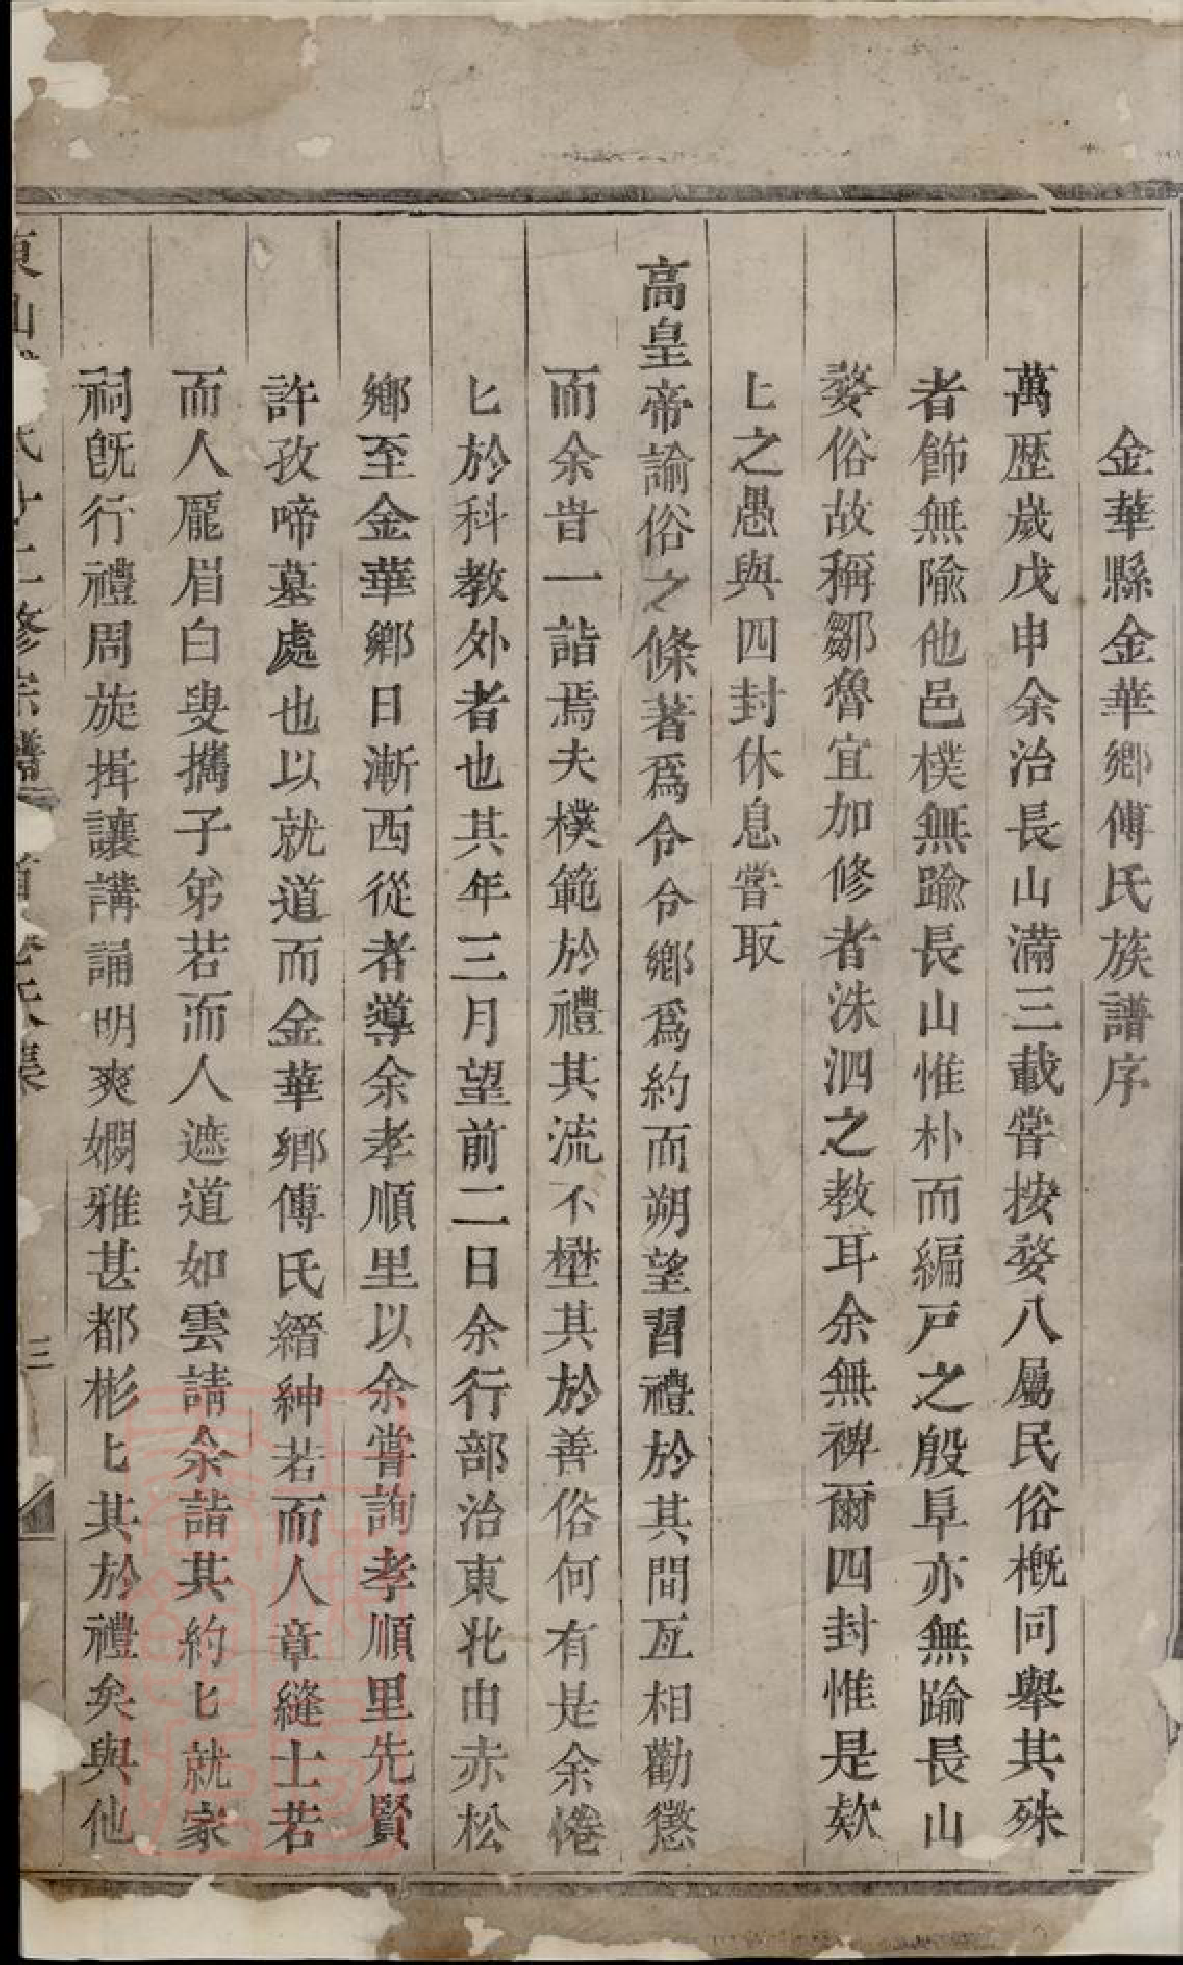 金華縣金華鄉傅氏族譜序
萬歷歲戊申余治長山滿三載嘗按婺八屬民俗槪同舉其殊
者飾無隃他邑樸無踰長山惟朴而編戸之殷阜亦無踰長山
婺俗故稱鄒魯宜加修者洙泗之教耳余無裨爾四封惟是欸
匕之愚與四封休息嘗取
高皇帝諭俗之條著爲令令鄉爲約而朔望習禮於其間亙相勸懲
而余昔一詣焉夫樸範於禮其流不壄其於善俗何有是余惓
匕於科教外者也其年三月望前二日余行部治東北由赤松
鄉至金華鄉日漸西從者導余孝順里以余嘗詢孝順里先賢
許孜啼墓處也以就道而金華鄉傅氏縉紳若而人章縫士若
而人龎眉白叟攜子弟若而人遮道如雲請余詣其約匕就家
祠旣行禮周旋揖讓講誦明爽嫻雅甚都彬匕其於禮矣與他
三